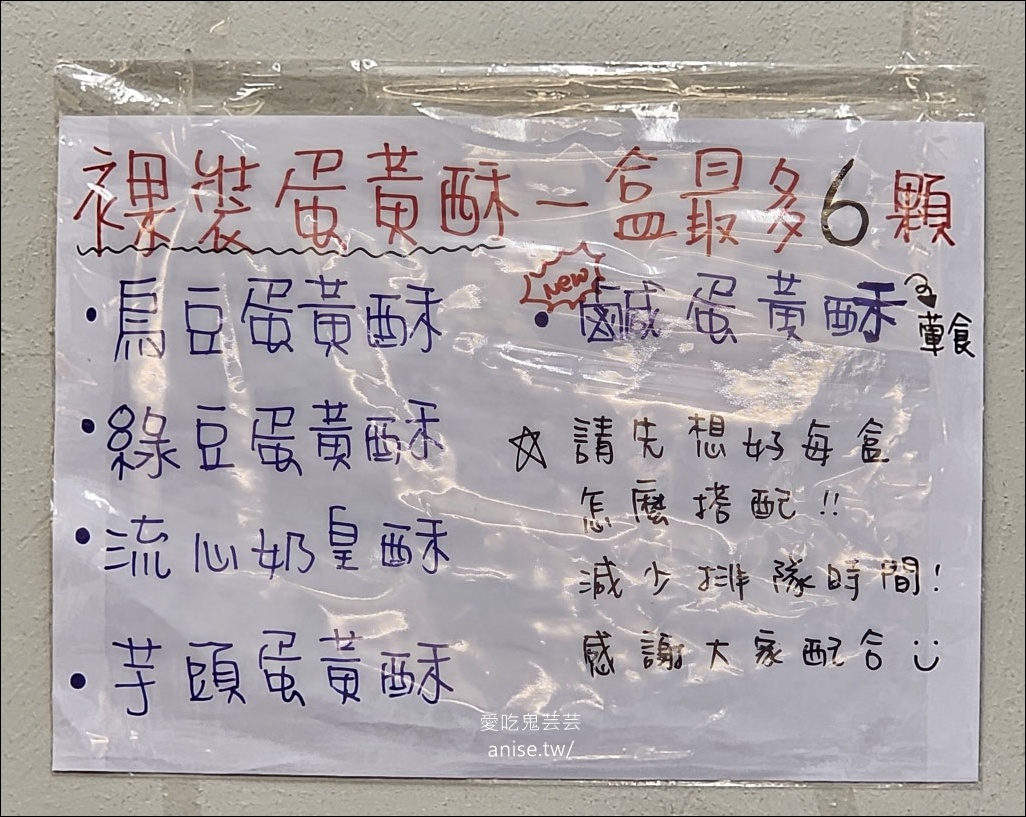 裸裝蛋黃酥一盒最多6顆
・烏豆蛋黃酥
・綠豆蛋黃酥
・流心奶皇酥
・芋頭蛋黃酥
New
・鹹蛋黃酥
葷食
☆請先想好每盒
怎麼搭配!!
減少排隊時間!
感謝大家配合
愛吃鬼芸芸
anise.tw/